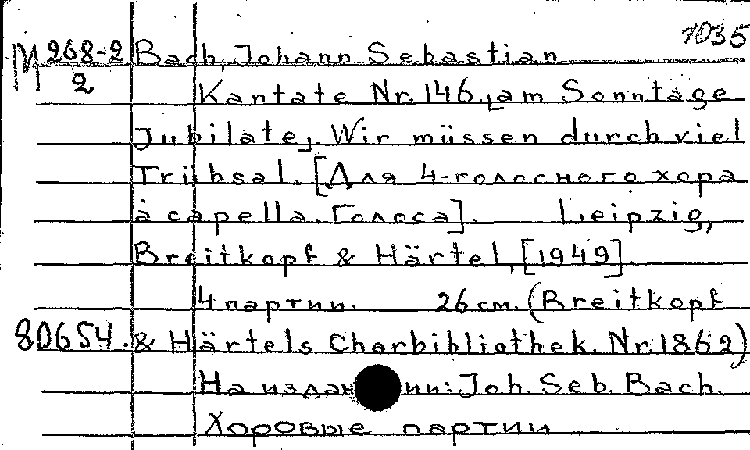 1035
M 268-2 Bach, Johann Sebastian
2 Kantate Nr. 146 (am Sonntage
Jubilate). Wir müssen durch viel
Trübsal. [Для 4-голосного хора
à capella. Голоса]. Leipzig,
Breitkopf & Härtel, [1949]
4 партии. 26 см. (Breitkopf
80654. & Härtels Chorbibliothek. Nr. 1862)
На издании: Joh. Seb. Bach
Хоровые партии